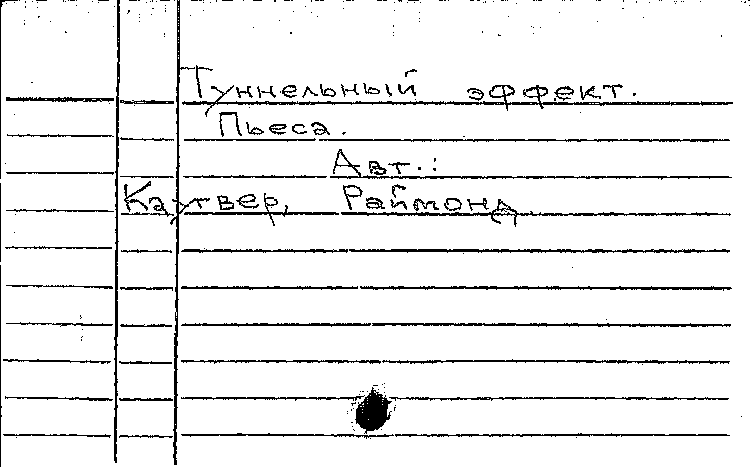 Туннельный эффект.
Пьеса.
Авт.:
Каутвер, Раймонд